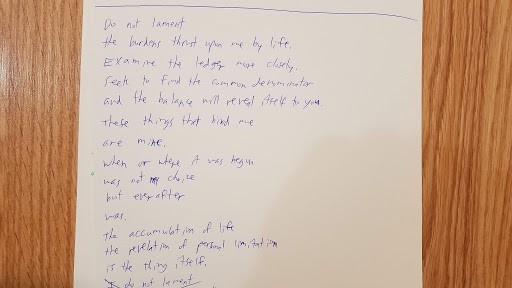 Do not lament
the burdens thrust upon me by life.
Examine the ledger more closely.
Seek to find the common denominator
and the balance will reveal itself to you.
These things that bind me
are mine.
when or where it was begun
was not my choice
but ever after
was.
The accumulation of life
the revelation of personal limitation
is the thing itself.
I do not lament